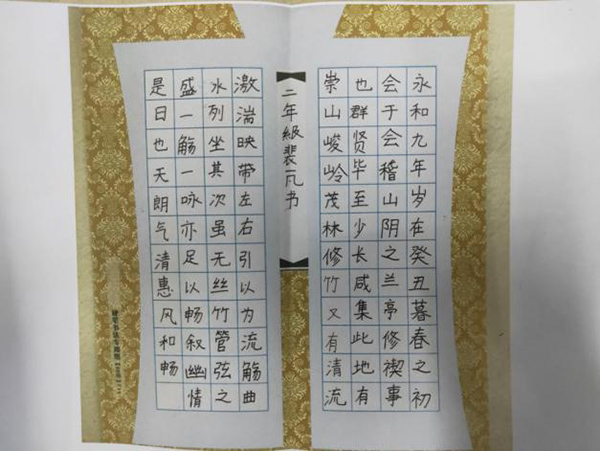 永和九年岁在癸丑暮春之初
会于会稽山阴之兰亭修禊事
也群贤毕至少长咸集此地有
崇山峻岭茂林修竹又有清流
二年級裴一凡书
激湍映带左右引以为流觞曲
水列坐其次虽无丝竹管弦之
盛一觞一咏亦足以畅叙幽情
是日也天朗气清惠风和畅
硬笔书法专用纸